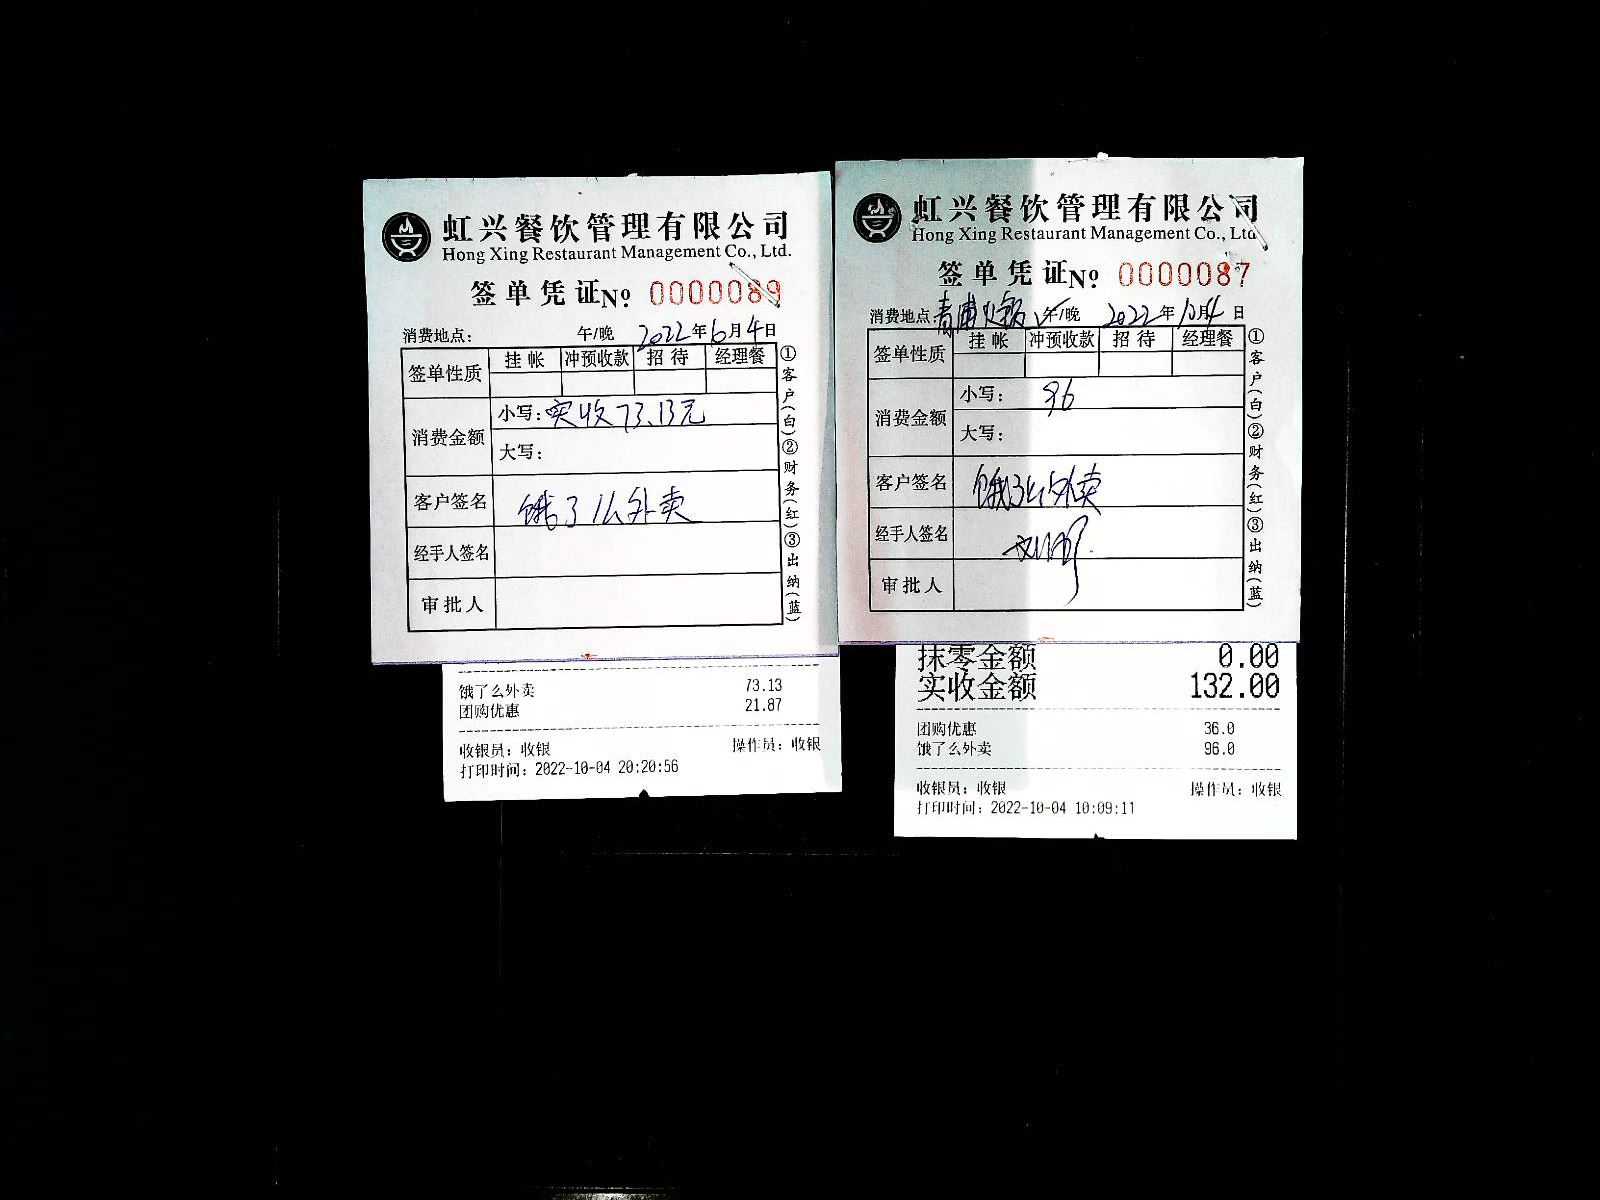 虹兴餐饮管理有限公司
Hong Xing Restaurant Management Co., Ltd.
签单凭证№ 0000089
消费地点: 午/晚 2022年10月4日
签单性质 挂帐 冲预收款 招待 经理餐
消费金额
小写: 实收73.13元
大写:
客户签名 饿了么外卖
经手人签名
审批人
①客户(白)②财务(红)③出纳(蓝)
饿了么外卖 73.13
团购优惠 21.87
收银员: 收银 操作员: 收银
打印时间: 2022-10-04 20:20:56
虹兴餐饮管理有限公司
Hong Xing Restaurant Management Co., Ltd
签单凭证№ 0000087
消费地点: 青浦火锅 午/晚 2022年10月4日
签单性质 挂帐 冲预收款 招待 经理餐
消费金额
小写: 96
大写:
客户签名 饿了么外卖
经手人签名
审批人
①客户(白)②财务(红)③出纳(蓝)
抹零金额 0.00
实收金额 132.00
团购优惠 36.0
饿了么外卖 96.0
收银员: 收银 操作员: 收银
打印时间: 2022-10-04 10:09:11